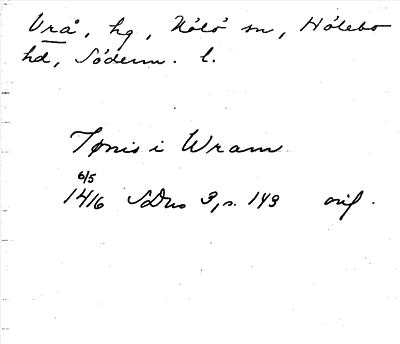 Vrå, hg, Hölö sn, Hölebo
hd, Söderm. l.
Tønis i Wram
6/5
1416 SDns 3, s. 143 orig.